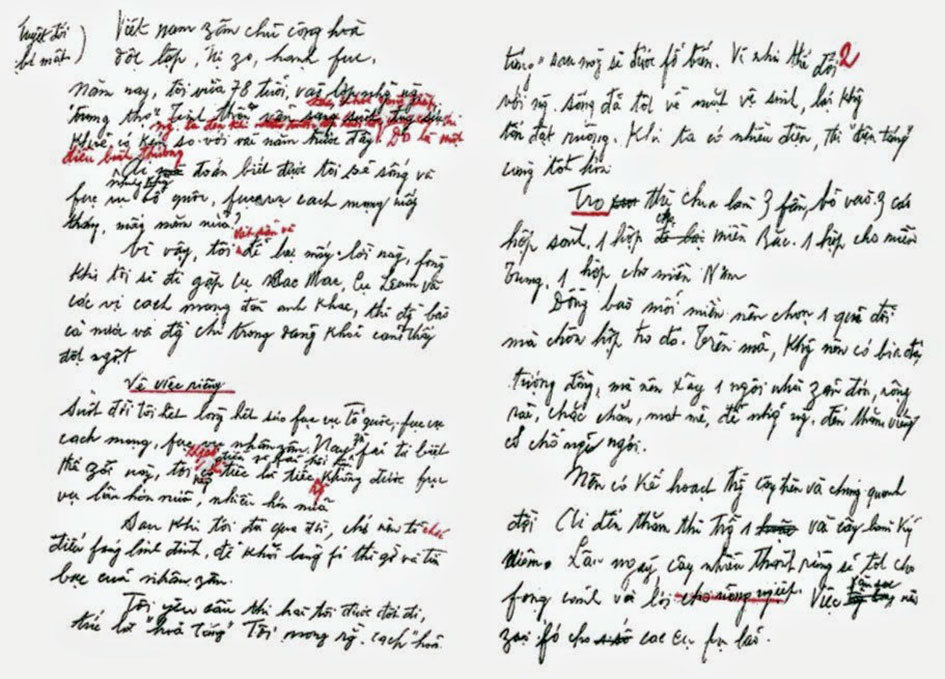 tuyệt đối
bí mật)
Việt nam zân chủ cộng hoà
độc lập, tự zo, hạnh fúc,
Năm nay, tôi vừa 78 tuổi, vào lớp những ng
"trung thọ". Tinh thần vẫn sáng suốt, thân
khoẻ có kém so với vài năm trước đây. Đó là một
điều bình thường
Ai mà đoán biết được tôi sẽ sống và
fục vụ tổ quốc, fục vụ cách mạng mấy
tháng, mấy năm nữa?
Vì vậy, tôi viết sẵn để lại mấy lời này, fòng
khi tôi sẽ đi gặp cụ Các Mác, cụ Lênin và
các vị cách mạng đàn anh khác, thì đ bào
cả nước và đ chí trong đảng khỏi cảm thấy
đột ngột
Về việc riêng
Suốt đời tôi hết lòng hết sức fục vụ tổ quốc, fục vụ
cách mạng, fục vụ nhân zân. Nay zù fải từ biệt
thế zới này, tôi không có điều gì fải hối hận
chỉ tiếc là tiếc không được fục
vụ lâu hơn nữa, nhiều hơn nữa
Sau khi tôi đã qua đời, chớ nên tổ chức
điếu fúng linh đình, để khỏi lãng fí thì giờ và tiền
bạc của nhân zân.
Tôi yêu cầu thi hài tôi được đốt đi,
tức là "hoả táng". Tôi mong rằng cách "hoả
2
táng" sau này sẽ được fổ biến. Vì như thế đối
với ng. sống đã tốt về mặt vệ sinh, lại khg
tốn đất ruộng. Khi ta có nhiều điện, thì "điện táng"
càng tốt hơn
Tro thì chia làm 3 fần, bỏ vào 3 cái
hộp sành, 1 hộp cho miền Bắc. 1 hộp cho miền
Trung, 1 hộp cho miền Nam
Đồng bào mỗi miền nên chọn 1 quả đồi
mà chôn hộp tro đó. Trên mả, khg nên có bia đá
tượng đồng, mà nên xây 1 ngôi nhà zản đơn, rộng
rãi, chắc chắn, mát mẻ, để những ng. đến thăm viếng
có chỗ nghỉ ngơi.
Nên có kế hoạch trồng cây trên và chung quanh
đồi. Ai đến thăm thì trồng 1 vài cây làm kỷ
niệm. Lâu ngày, cây nhiều thành rừng sẽ tốt cho
fong cảnh và lợi cho nông nghiệp. Việc săn sóc nên
zao fó cho các cụ fụ lão.